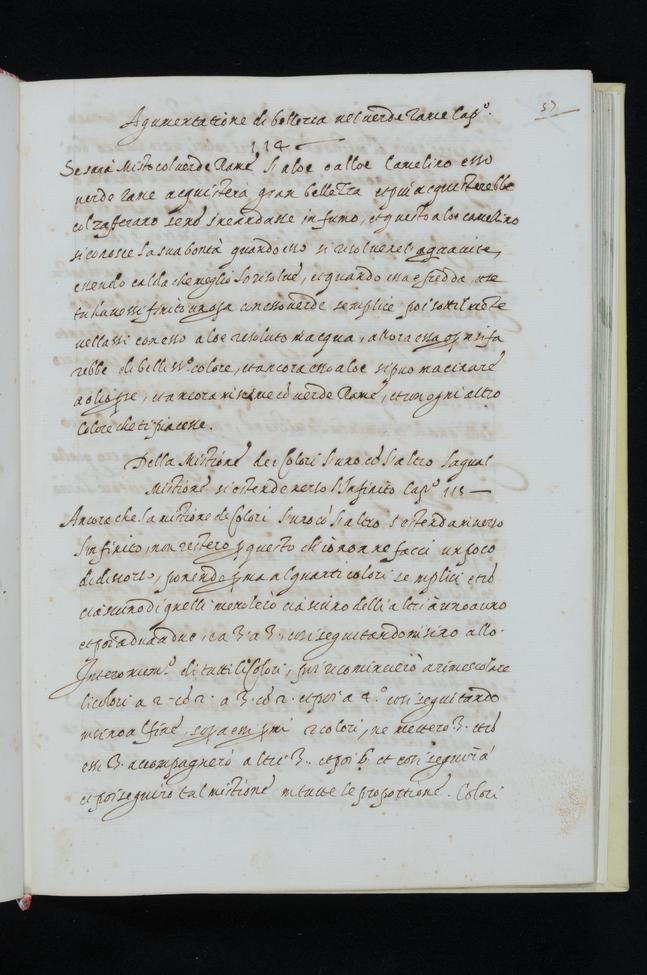 57
Agumentatione di bellezza nel verde Rame Cap.º
114
Se sarà Misto col verde Rame li aloe o alloe Camelino esso
verde rame acquisterà gran bellezza et più acquisterebbe
col zafferano se nō se ne andasse in fumo, et questo aloe camellino
si conosce la sua bontà quando esso si risolve nel aqua vite,
essendo calda che meglio lo risolve, e quando essa è fredda, et se
tu havessi finito una opa con esso verde semplice poi sottilmēte
vellassi con esso aloe resoluto in acqua, allora essa opa si fa
rebbe di belliss.º colore, et ancora esso aloe si può macinare
a olio per se, et ancora insieme cō verde Rame, et con ogni altro
Colore che ti piacesse.
Della Mistione de i Colori l'uno cō l'altro la qual
Mistione si estende verso l'Infinito Cap.º 115
Ancora che la mistione de Colori l'uno cō l'altro s'estenda inverso
l'infinito, non restero p questo ch'io non ne facci un poco
di discorso, ponendo pma alquanti colori semplici et cō
ciascuno di quelli mescolerò ciascuno delli altri à uno à uno
et poi a due a due, et a 3. a 3., così seguitando insino allo
Intero num.º di tutti li Colori, poi ricomincierò à rimescolare
li colori a 2. cō 2. a 3. cō 2. et poi a 4.º così seguitando
insino al fine, sopa essi pmi 2 colori, ne metterò 3. et cō
essi 3. acompagnerò altri 3.. et poi 6. et così seguirà
et poi seguirò tal mistione in tutte le proportione. Colori